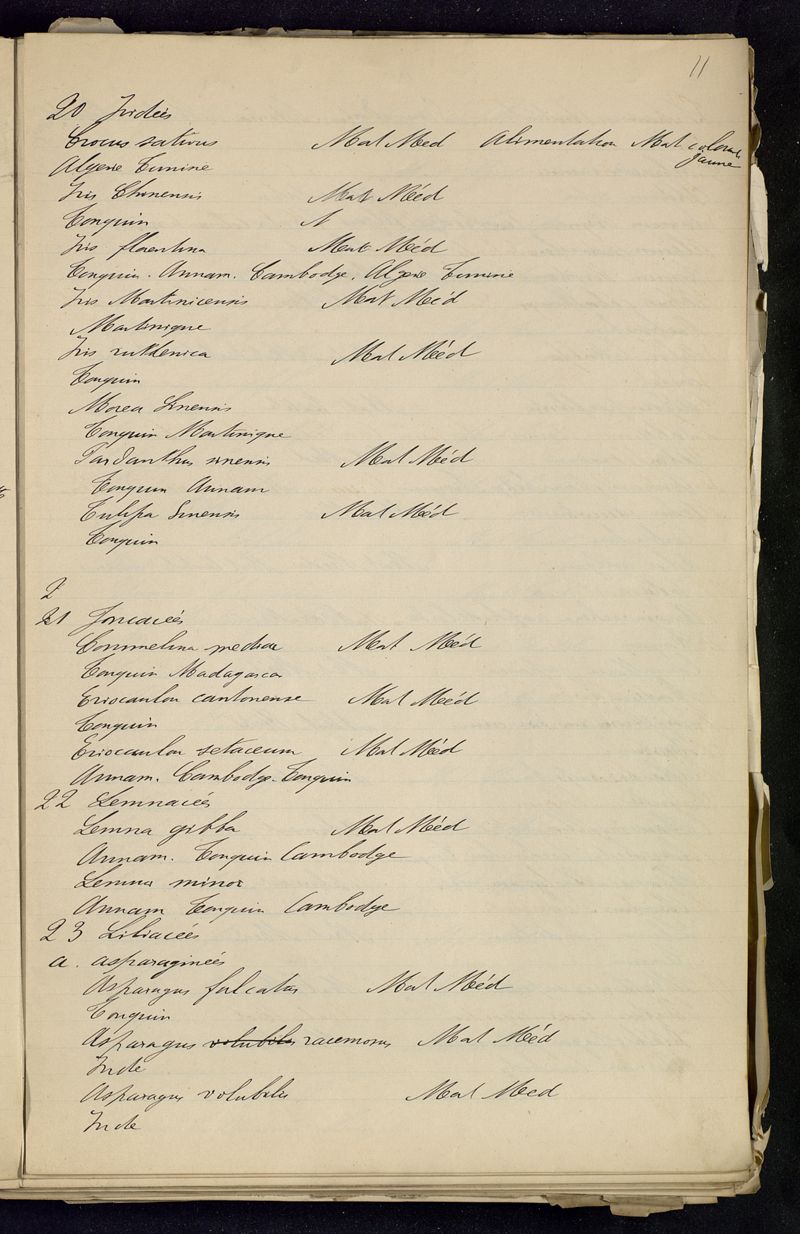 11
20 Iridées
Crocus sativus Mat Med Alimentation Mat colorante
jaune
Algerie Tunisie
Iris Chinensis Mat Méd
Tonquin
Iris florentina Mat Méd
Tonquin. Annam. Cambodge. Algerie Tunisie
Iris Martinicensis Mat Méd
Martinique
Iris ruthenica Mat Méd
Tonquin
Morea Sinensis
Tonquin Martinique
Pardanthus sinensis Mat Méd
Tonquin Annam
Tulipa Sinensis Mat Méd
Tonquin
2
21 Joncacées
Commelina medica Mat Méd
Tonquin Madagascar
Eriocaulon cantonense Mat Méd
Tonquin
Eriocaulon setaceum Mat Méd
Annam. Cambodge. Tonquin
22 Lemnacées
Lemna gibba Mat Méd
Annam. Tonquin Cambodge
Lemna minor
Annam Tonquin Cambodge
23 Liliacées
a. asparaginées
Asparagus falcatus Mat Méd
Tonquin
Asparagus volubilis racemosus Mat Méd
Inde
Asparagus volubilis Mat Med
Inde